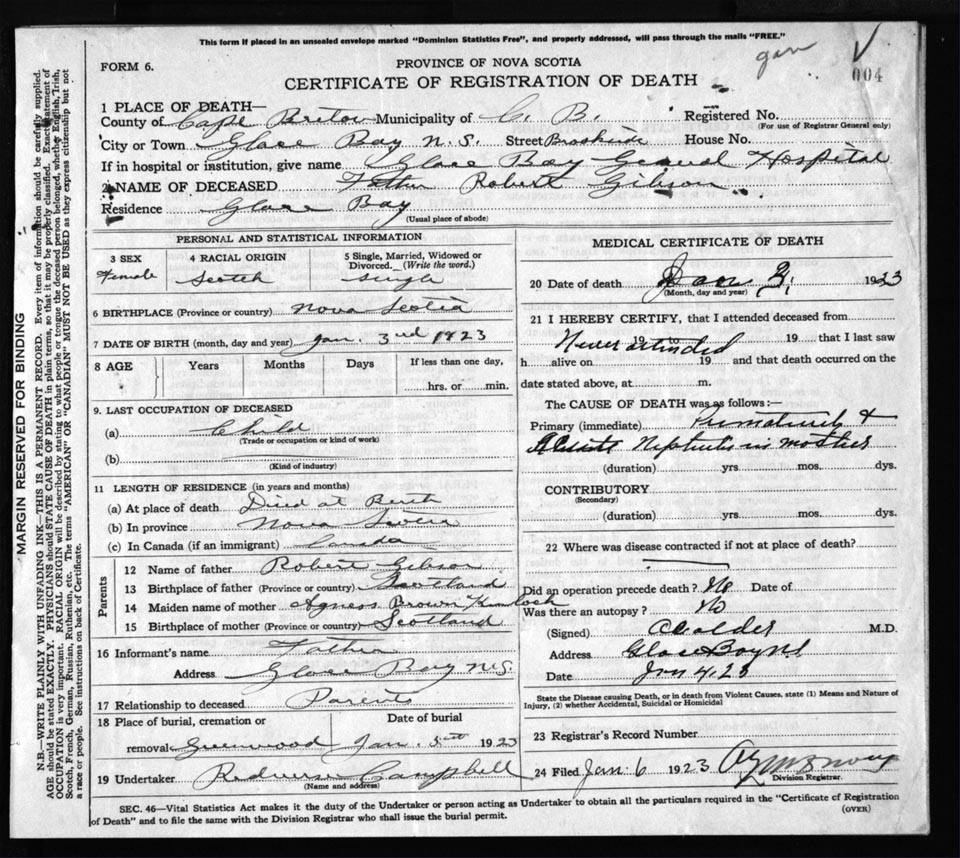 This form if placed in an unsealed envelope marked "Dominion Statistics Free", and properly addressed, will pass through the mails "FREE."
004
FORM 6.
PROVINCE OF NOVA SCOTIA
CERTIFICATE OF REGISTRATION OF DEATH
1 PLACE OF DEATH—
County of Cape Breton Municipality of C. B. Registered No.
(For use of Registrar General only)
City or Town Glace Bay N.S. Street Brookside House No.
If in hospital or institution, give name Glace Bay General Hospital
2 NAME OF DECEASED Father Robert Gibson
Residence Glace Bay
(Usual place of abode)
PERSONAL AND STATISTICAL INFORMATION
3 SEX 4 RACIAL ORIGIN 5 Single, Married, Widowed or Divorced. (Write the word.)
Female Scotch Single
6 BIRTHPLACE (Province or country) Nova Scotia
7 DATE OF BIRTH (month, day and year) Jan. 3rd 1923
8 AGE Years Months Days If less than one day,
hrs. or min.
9. LAST OCCUPATION OF DECEASED
(a) Child
(Trade or occupation or kind of work)
(b)
(Kind of industry)
11 LENGTH OF RESIDENCE (in years and months)
(a) At place of death Died at Birth
(b) In province Nova Scotia
(c) In Canada (if an immigrant) Canada
Parents
12 Name of father Robert Gibson
13 Birthplace of father (Province or country) Scotland
14 Maiden name of mother Agness Brown Kinloch
15 Birthplace of mother (Province or country) Scotland
16 Informant's name Father
Address Glace Bay N.S.
17 Relationship to deceased Parents
18 Place of burial, cremation or Date of burial
removal Greenwood Jan. 5th 1923
19 Undertaker Campbell
(Name and address)
MEDICAL CERTIFICATE OF DEATH
20 Date of death Jan 3, 1923
(Month, day and year)
21 I HEREBY CERTIFY, that I attended deceased from
Never attended 19 to 19 that I last saw
h alive on 19 and that death occurred on the
date stated above, at m.
The CAUSE OF DEATH was as follows:—
Primary (immediate) Prematurity &
Nephritis in mother
(duration) yrs. mos. dys.
CONTRIBUTORY
(Secondary)
(duration) yrs. mos. dys.
22 Where was disease contracted if not at place of death?
Did an operation precede death? No Date of
Was there an autopsy? No
(Signed) Calder M.D.
Address Glace Bay NS
Date Jan 4, 23
State the Disease causing Death, or in death from Violent Causes, state (1) Means and Nature of
Injury, (2) whether Accidental, Suicidal or Homicidal
23 Registrar's Record Number
24 Filed Jan 6 1923
Division Registrar.
SEC. 46—Vital Statistics Act makes it the duty of the Undertaker or person acting as Undertaker to obtain all the particulars required in the "Certificate of Registration
of Death" and to file the same with the Division Registrar who shall issue the burial permit.
(OVER)
MARGIN RESERVED FOR BINDING
N.B.—WRITE PLAINLY WITH UNFADING INK—THIS IS A PERMANENT RECORD. Every item of information should be carefully supplied.
AGE should be stated EXACTLY. PHYSICIANS should STATE CAUSE OF DEATH in plain terms, so that it may be properly classified. Exact statement of
OCCUPATION is very important. RACIAL ORIGIN will be described by stating to what people or tongue the deceased person belonged, whether English, Irish,
Scotch, French, German, Russian, Ruthenian, etc. The terms "AMERICAN" OR "CANADIAN" MUST NOT BE USED as they express citizenship but not
a race or people. See instructions on back of Certificate.